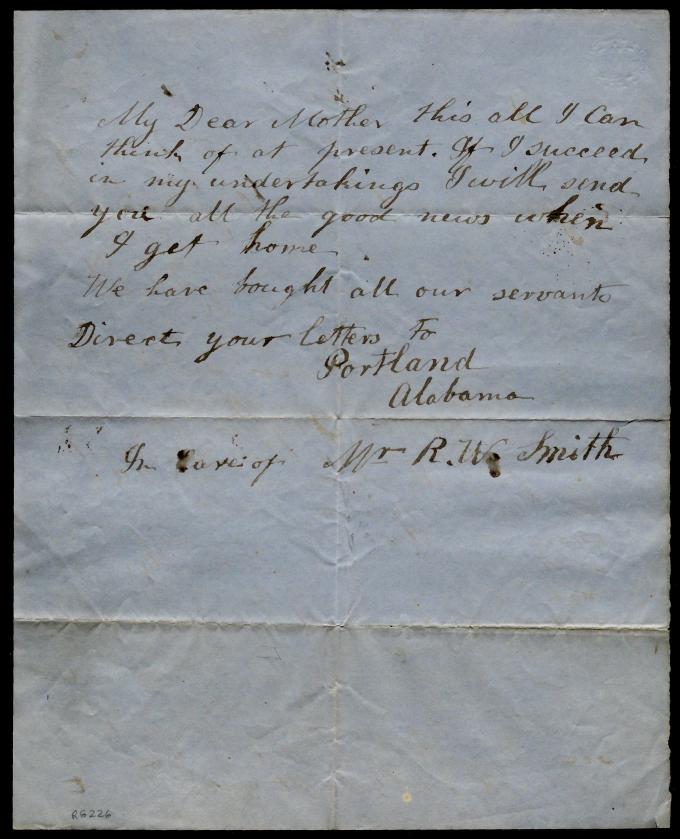 My Dear Mother this all I Can
think of at present. If I succeed
in my undertakings I will send
you all the good news when
I get home
We have bought all our servants
Direct your letters To
Portland
Alabama
In Care of Mr R. W. Smith
RG226